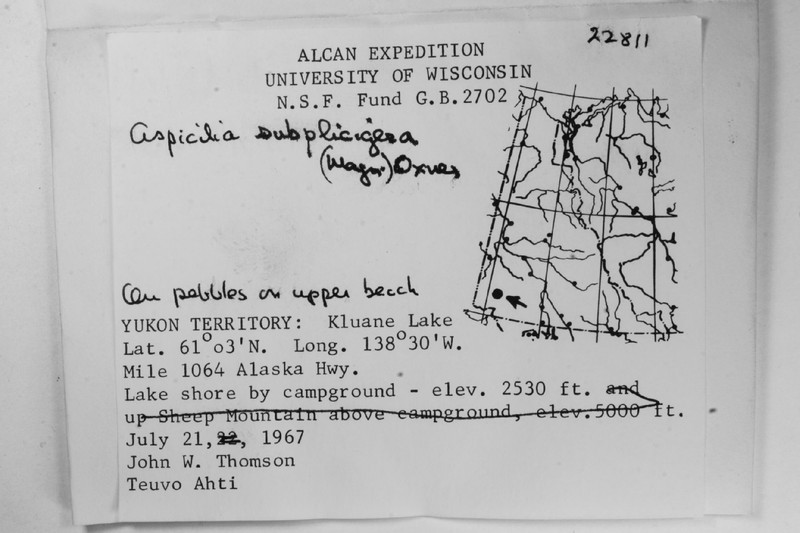 22811
ALCAN EXPEDITION
UNIVERSITY OF WISCONSIN
N.S.F. Fund G.B.2702
Aspicilia subplicigera
(Magn.) Oxner
On pebbles on upper beach
YUKON TERRITORY: Kluane Lake
Lat. 61°o3'N. Long. 138°30'W.
Mile 1064 Alaska Hwy.
Lake shore by campground - elev. 2530 ft. and
up Sheep Mountain above campground, elev.5000 ft.
July 21,22, 1967
John W. Thomson
Teuvo Ahti